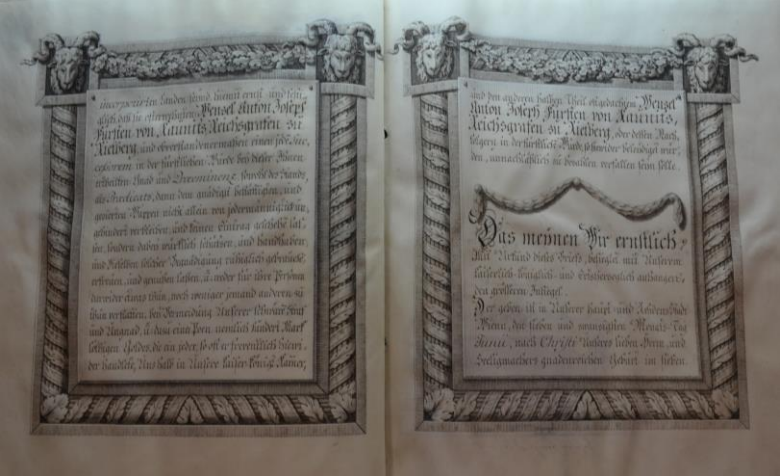 incorporirten Landen seynd, hiemit ernst und fest,
daß sie oftermelten Wenzel Anton Joseph
Fürsten von Kaunitz Reichsgrafen zu
Rietberg und
in der Fürstlichen Würde bey dieser Ihnen
ertheilten Gnad und Preeminenz sowohl des Lands,
als Prædicats, dann dem gnädigst bestättigten, und
gezierten Wappen nicht allein von jedermänniglich un,
gehindert verbleiben, und keinen Eintrag geschehe las,
sen, sondern dabey würcklich schützen, und handhaben
und Dieselben solcher Begnädigung ruhiglich gebrauche,
erfreuen, und genüßen laßen, u. weder für ihre Persohn
darwider etwas thun, noch weniger jemand anderen zu
thun verstatten, bey Vermeidung Unserer schweren Straf
und Ungnad, u. dazu eine Poen nemlich hundert Marck
löthigen Goldes, die ein jeder, so oft er freventlich hierwi,
der handlete, Uns halb in Unsere kaiser-königl. Kamer,
und den anderen halben Theil oftgedachtem Wenzel
Anton Joseph Fürsten von Kaunitz,
Reichsgrafen zu Rietberg, oder dessen Nach,
folgern in der Fürstliche Würde, so hierwider beleidiget wur,
den, unnachläßlich zu bezahlen verfallen seyn solle.
Das meinen Wir ernstlich!
Mit Urkund dieses Briefs, besiegelt mit Unserem
kaiserlich-königlich- und Erzherzoglich anhangen,
den größeren Insiegel.
Der geben ist in Unserer Haupt- und Residenz Stadt
Wienn, den sieben und zwanzigsten Monats-Tag
Junii, nach Christi Unsers lieben Herrn, und
Seeligmachers gnadenreichen Geburt im sieben,